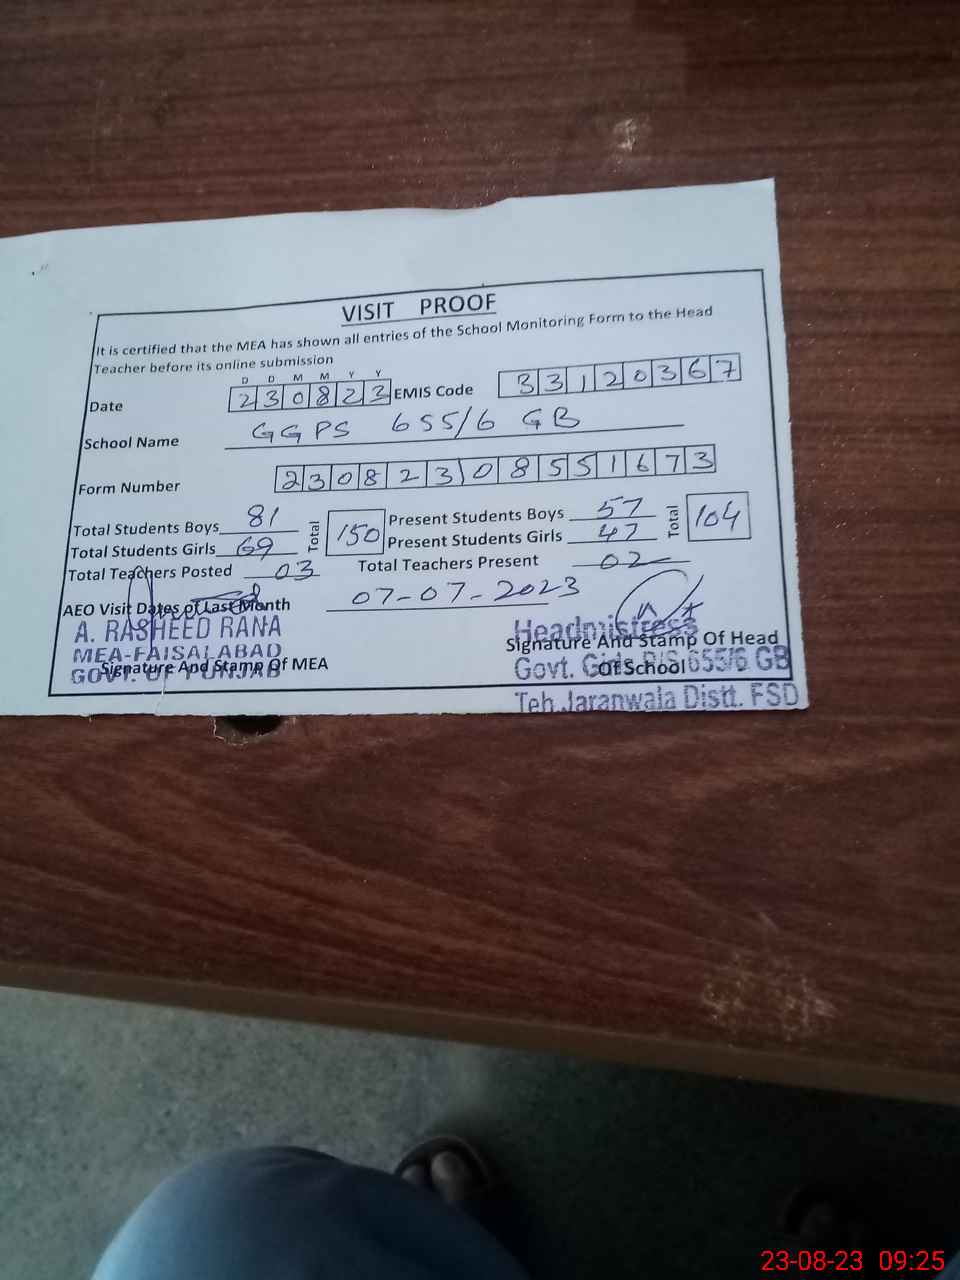 VISIT PROOF
It is certified that the MEA has shown all entries of the School Monitoring Form to the Head
Teacher before its online submission
D D M M Y Y
Date 230823 EMIS Code 33120367
School Name GGPS 655/6 GB
Form Number 23082308551673
Total Students Boys 81 Total 150 Present Students Boys 57 Total 104
Total Students Girls 69 Present Students Girls 47
Total Teachers Posted 03 Total Teachers Present 02
AEO Visit Dates of Last Month 07-07-2023
A. RASHEED RANA
MEA-FAISALABAD
GOVT. OF PUNJAB
Signature And Stamp Of MEA
Headmistress
Signature And Stamp Of Head
Of School
Govt. Girls P/S 655/6 GB
Teh Jaranwala Distt. FSD
23-08-23 09:25